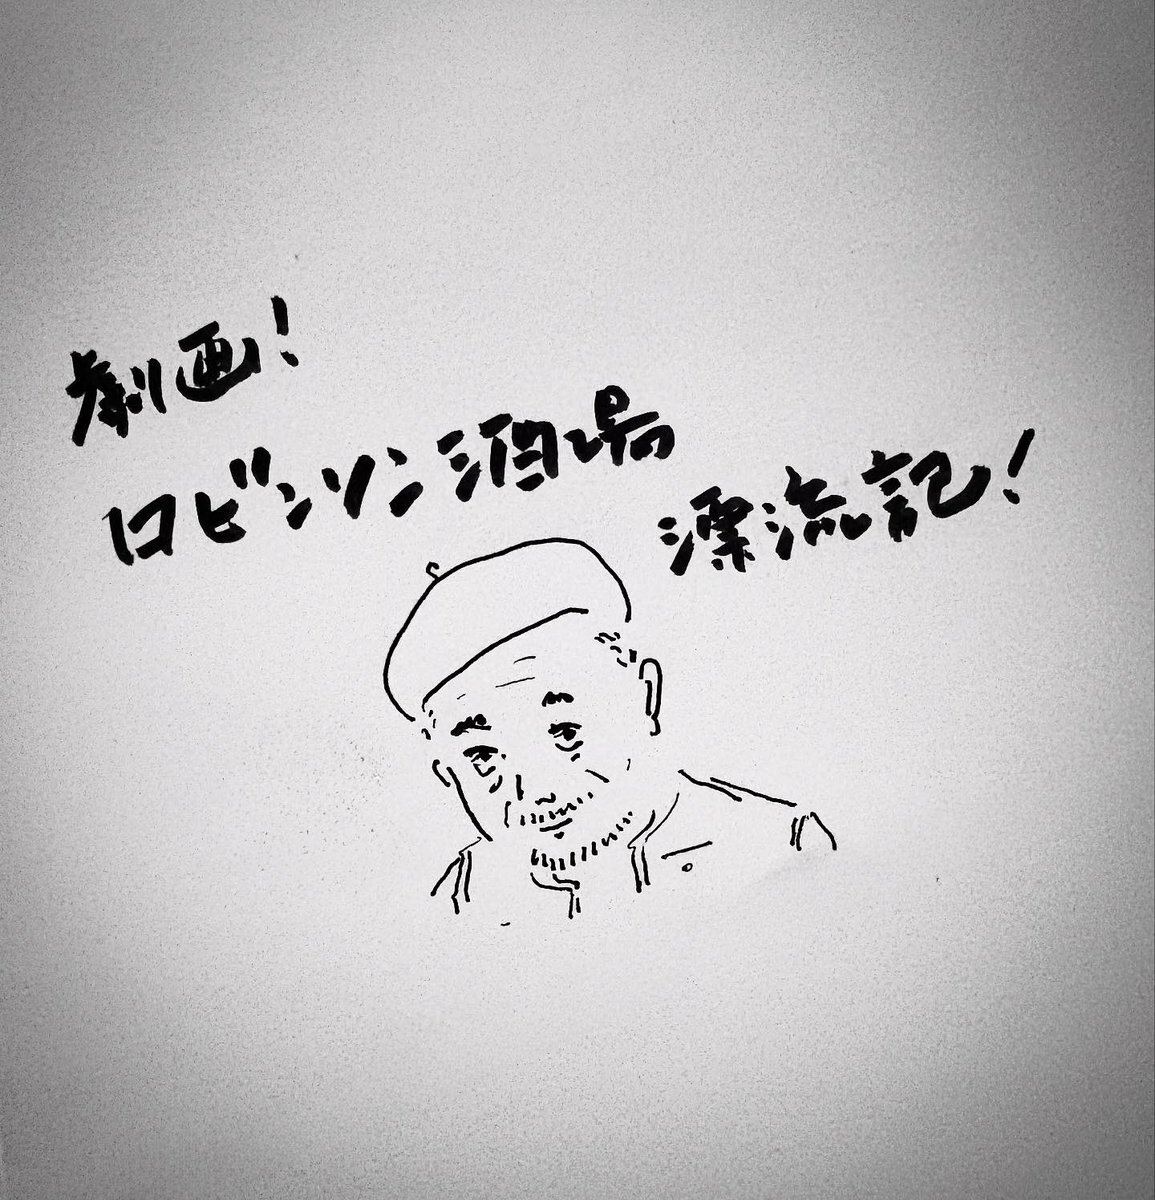 劇画!
ロビンソン酒場
漂流記!